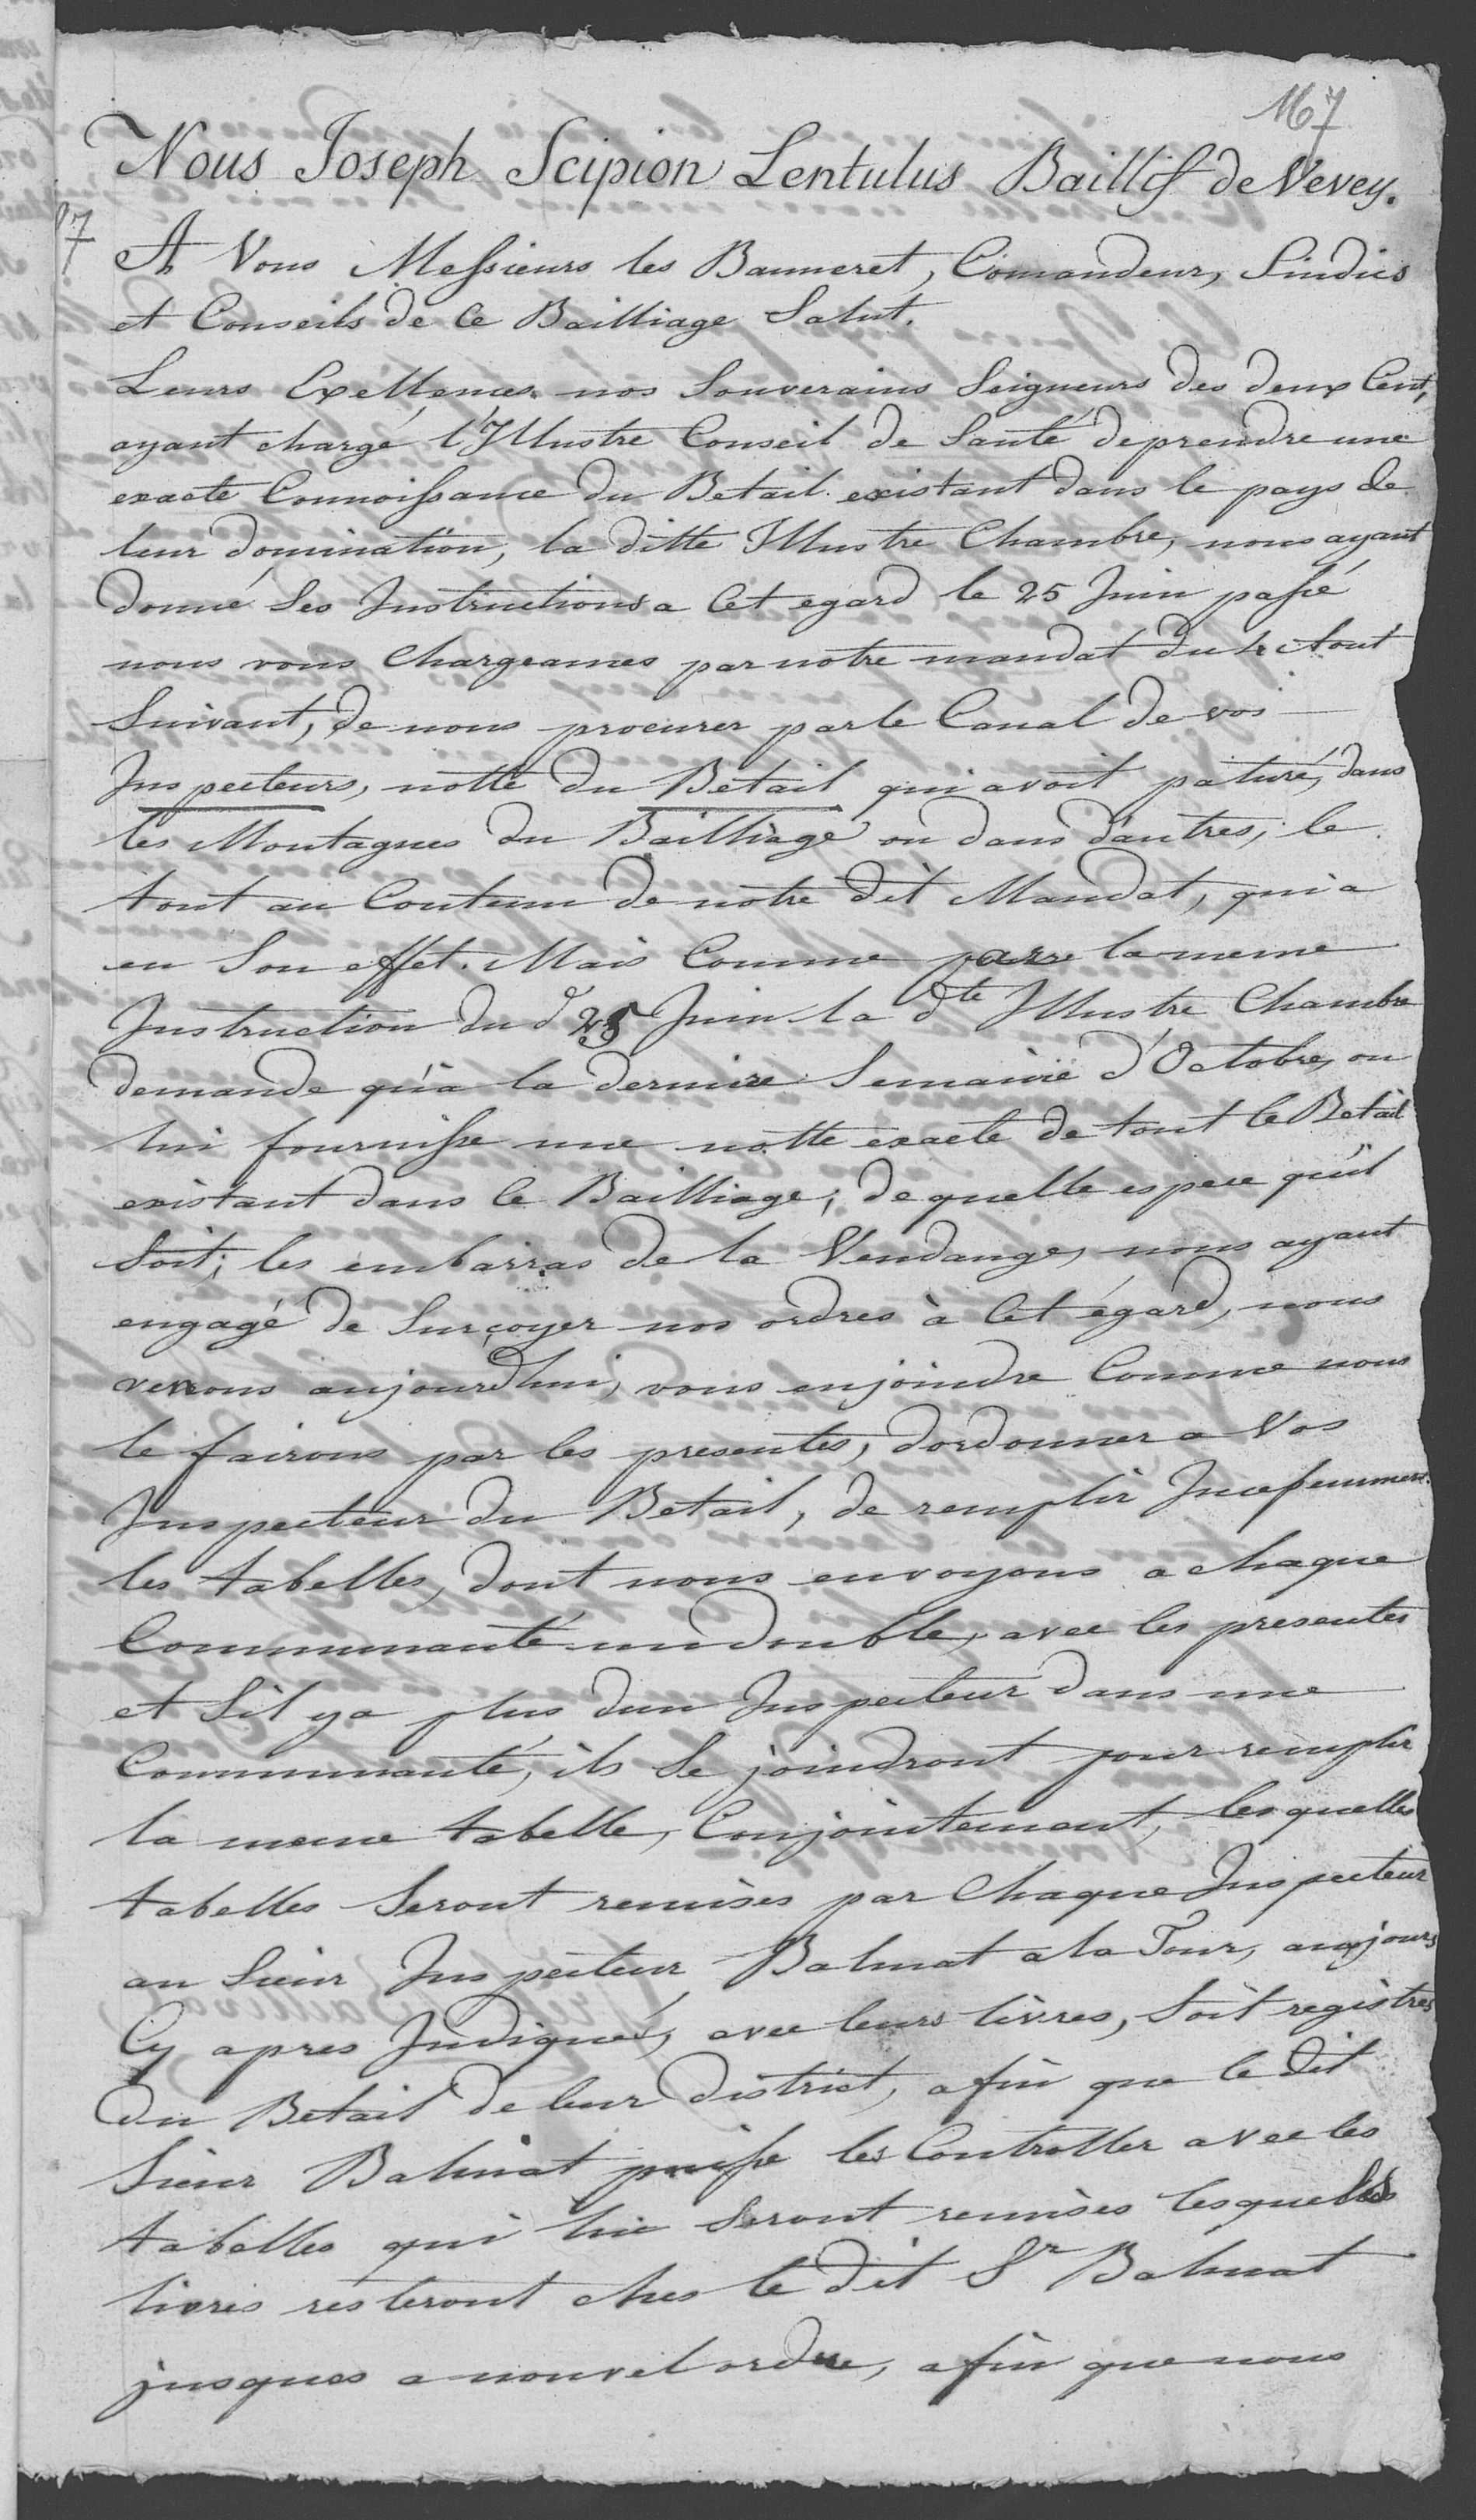 167
Nous Joseph Scipion Lentulus Baillif de Vevey.
A Vous Messieurs les Banneret, Comandeur, Sindics
et Conseils de Ce Bailliage Salut.
Leurs Exellences nos Souverains Seigneurs des deux Cent,
ayant chargé l'Illustre Conseil de Santé de prendre une
exacte Connoissance du Betail existant dans le pays de
leur domination, la ditte Illustre Chambre, nous ayant
donné Ses Instructions a Cet egard le 25 Juin passé
nous vous Chargeames par notre mandat du Aout
Suivant, de nous procurer par le Canal de vos
Inspecteurs, notte du Betail qui avoit paturé, dans
les Montagnes du Bailliage ou dans d'autres, le
tout au Contenu de notre dit Mandat, qui a
eu Son effet. Mais Comme par la meme
Instruction du d 25 Juin la dte Illustre Chambre
demande qu'a la derniere Semaine d'Octobre, on
lui fournisse une notte exacte de tout le Betail
existant dans le Bailliage, de quelle espece qu'il
Soit; les embarras de la Vendange, nous ayant
engagé de Surçoyer nos ordres à Cet égard, nous
venons aujourdhui, vous enjoindre Comme nous
le fairons par les presentes, dordonner a Vos
Inspecteur du Betail, de remplir Incessemment
les tabelles, dont nous envoyons a chaque
Communauté un double, avec les presentes
et Sil y a plus dun Inspecteur dans une
Communauté, ils Se joindront pour remplir
la meme tabelle, Conjointement, lesquelles
tabelles Seront remises par Chaque Inspecteur
au Sieur Inspecteur Balmat a la Tour, aux jours
Cy apres Indiqués, avec leurs livres, Soit registres
du Betail de leur district, afin que le dit
Sieur Balmat puisse les Controller avec les
tabelles qui lui Seront remises lesquelles
livres resteront ches le dit Sr Balmat
jusques a nouvel ordre, afin que nous